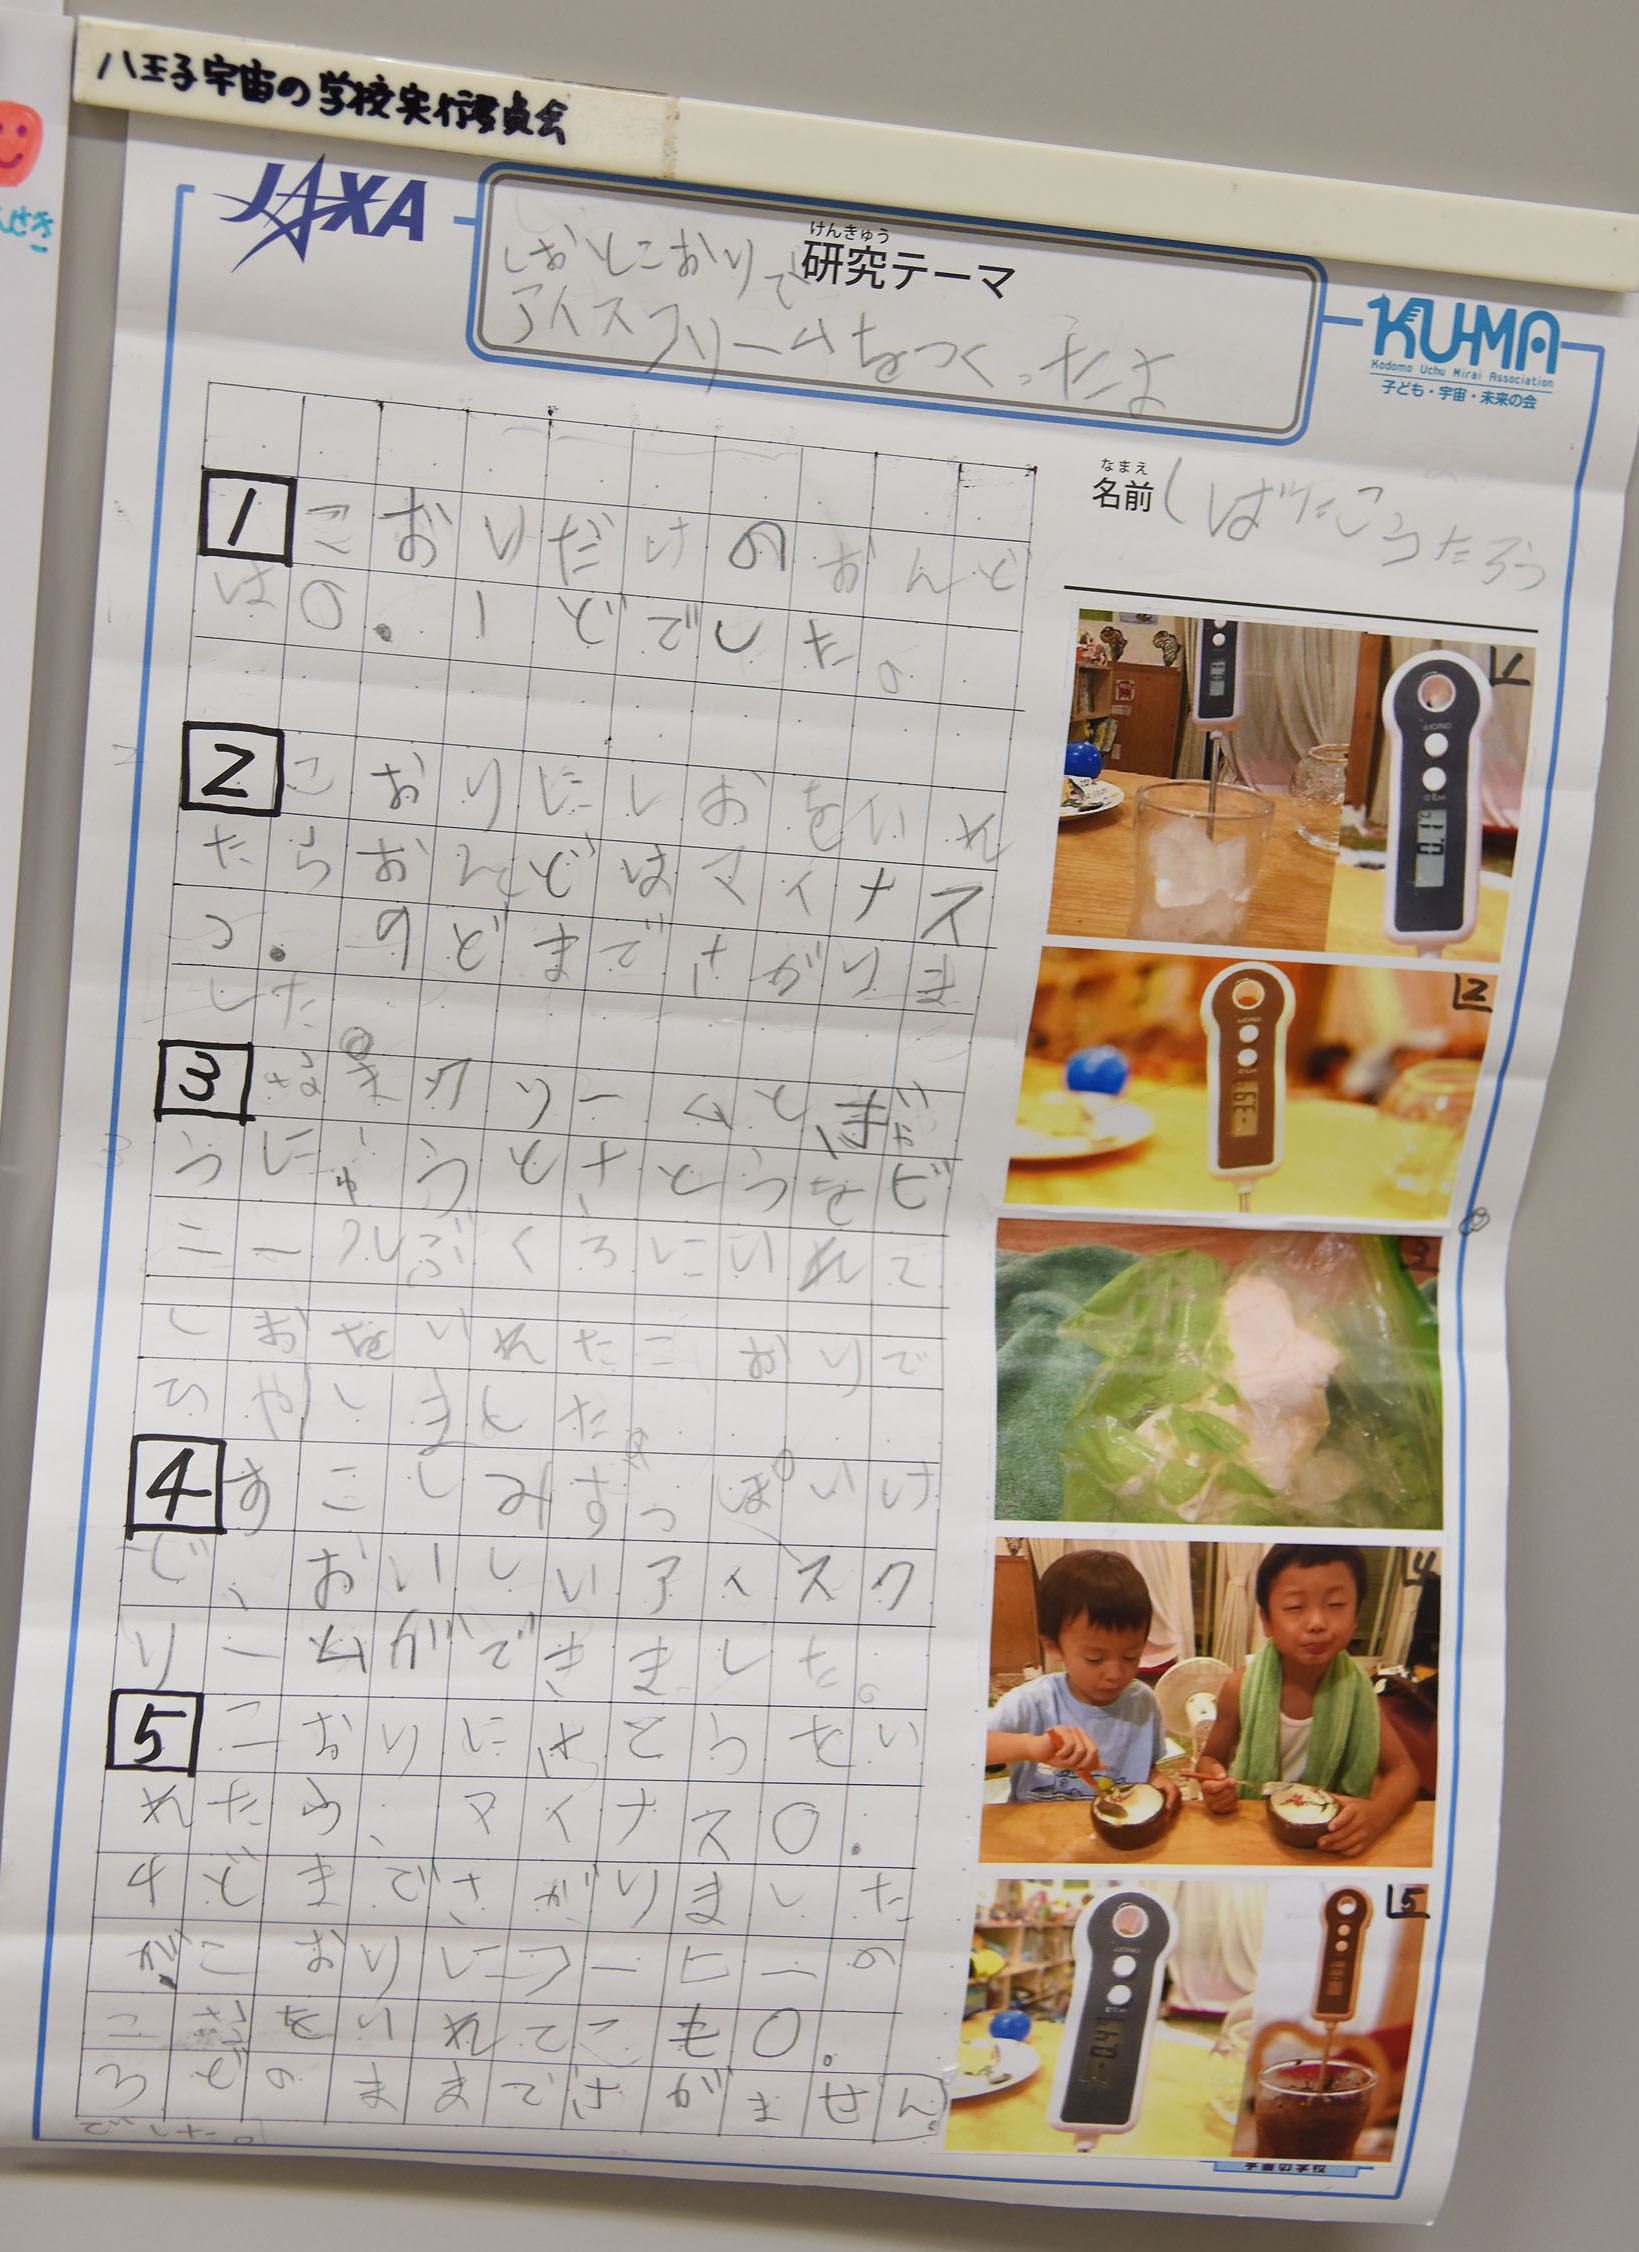 八王子宇宙の学校実行委員会
JAXA
けんきゅう
研究テーマ
しおとこおりで
アイスクリームをつくったよ
KU-MA
Kodomo Uchu Mirai Association
子ども・宇宙・未来の会
なまえ
名前
しばたこうたろう
1 こおりだけのおんど
は0.1どでした。
2 こおりにしおをいれ
たらおんどはマイナス
つ.のどまでさがりま
した
3 なまクリームとぎ
うにゅうとさとうをビ
ニールぶくろにいれて
しおをいれたこおりで
ひやしました。
4 すこしみずっぽいけ
ど、おいしいアイスク
リームができました。
5 こおりにさとうをい
れたら、マイナス0.
4どまでさがりました
がこおりにコーヒーの
こなをいれてこも0.
ろどのままでさがません
でした。
1
2
3
4
5